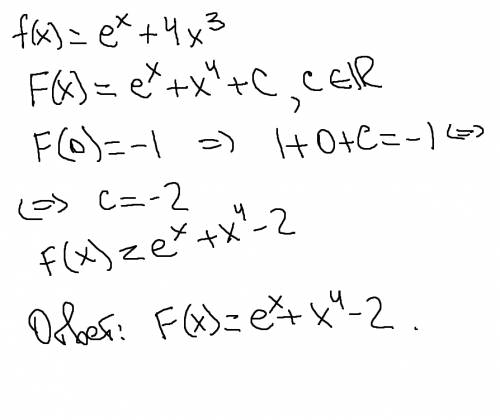 f(x) = eˣ + 4x³
F(x) = eˣ + x⁴ + C, C∈ℝ
F(0) = -1 => 1+0+C = -1 <=>
<=> C = -2
F(x) = eˣ + x⁴ - 2
Ответ: F(x) = eˣ + x⁴ - 2.